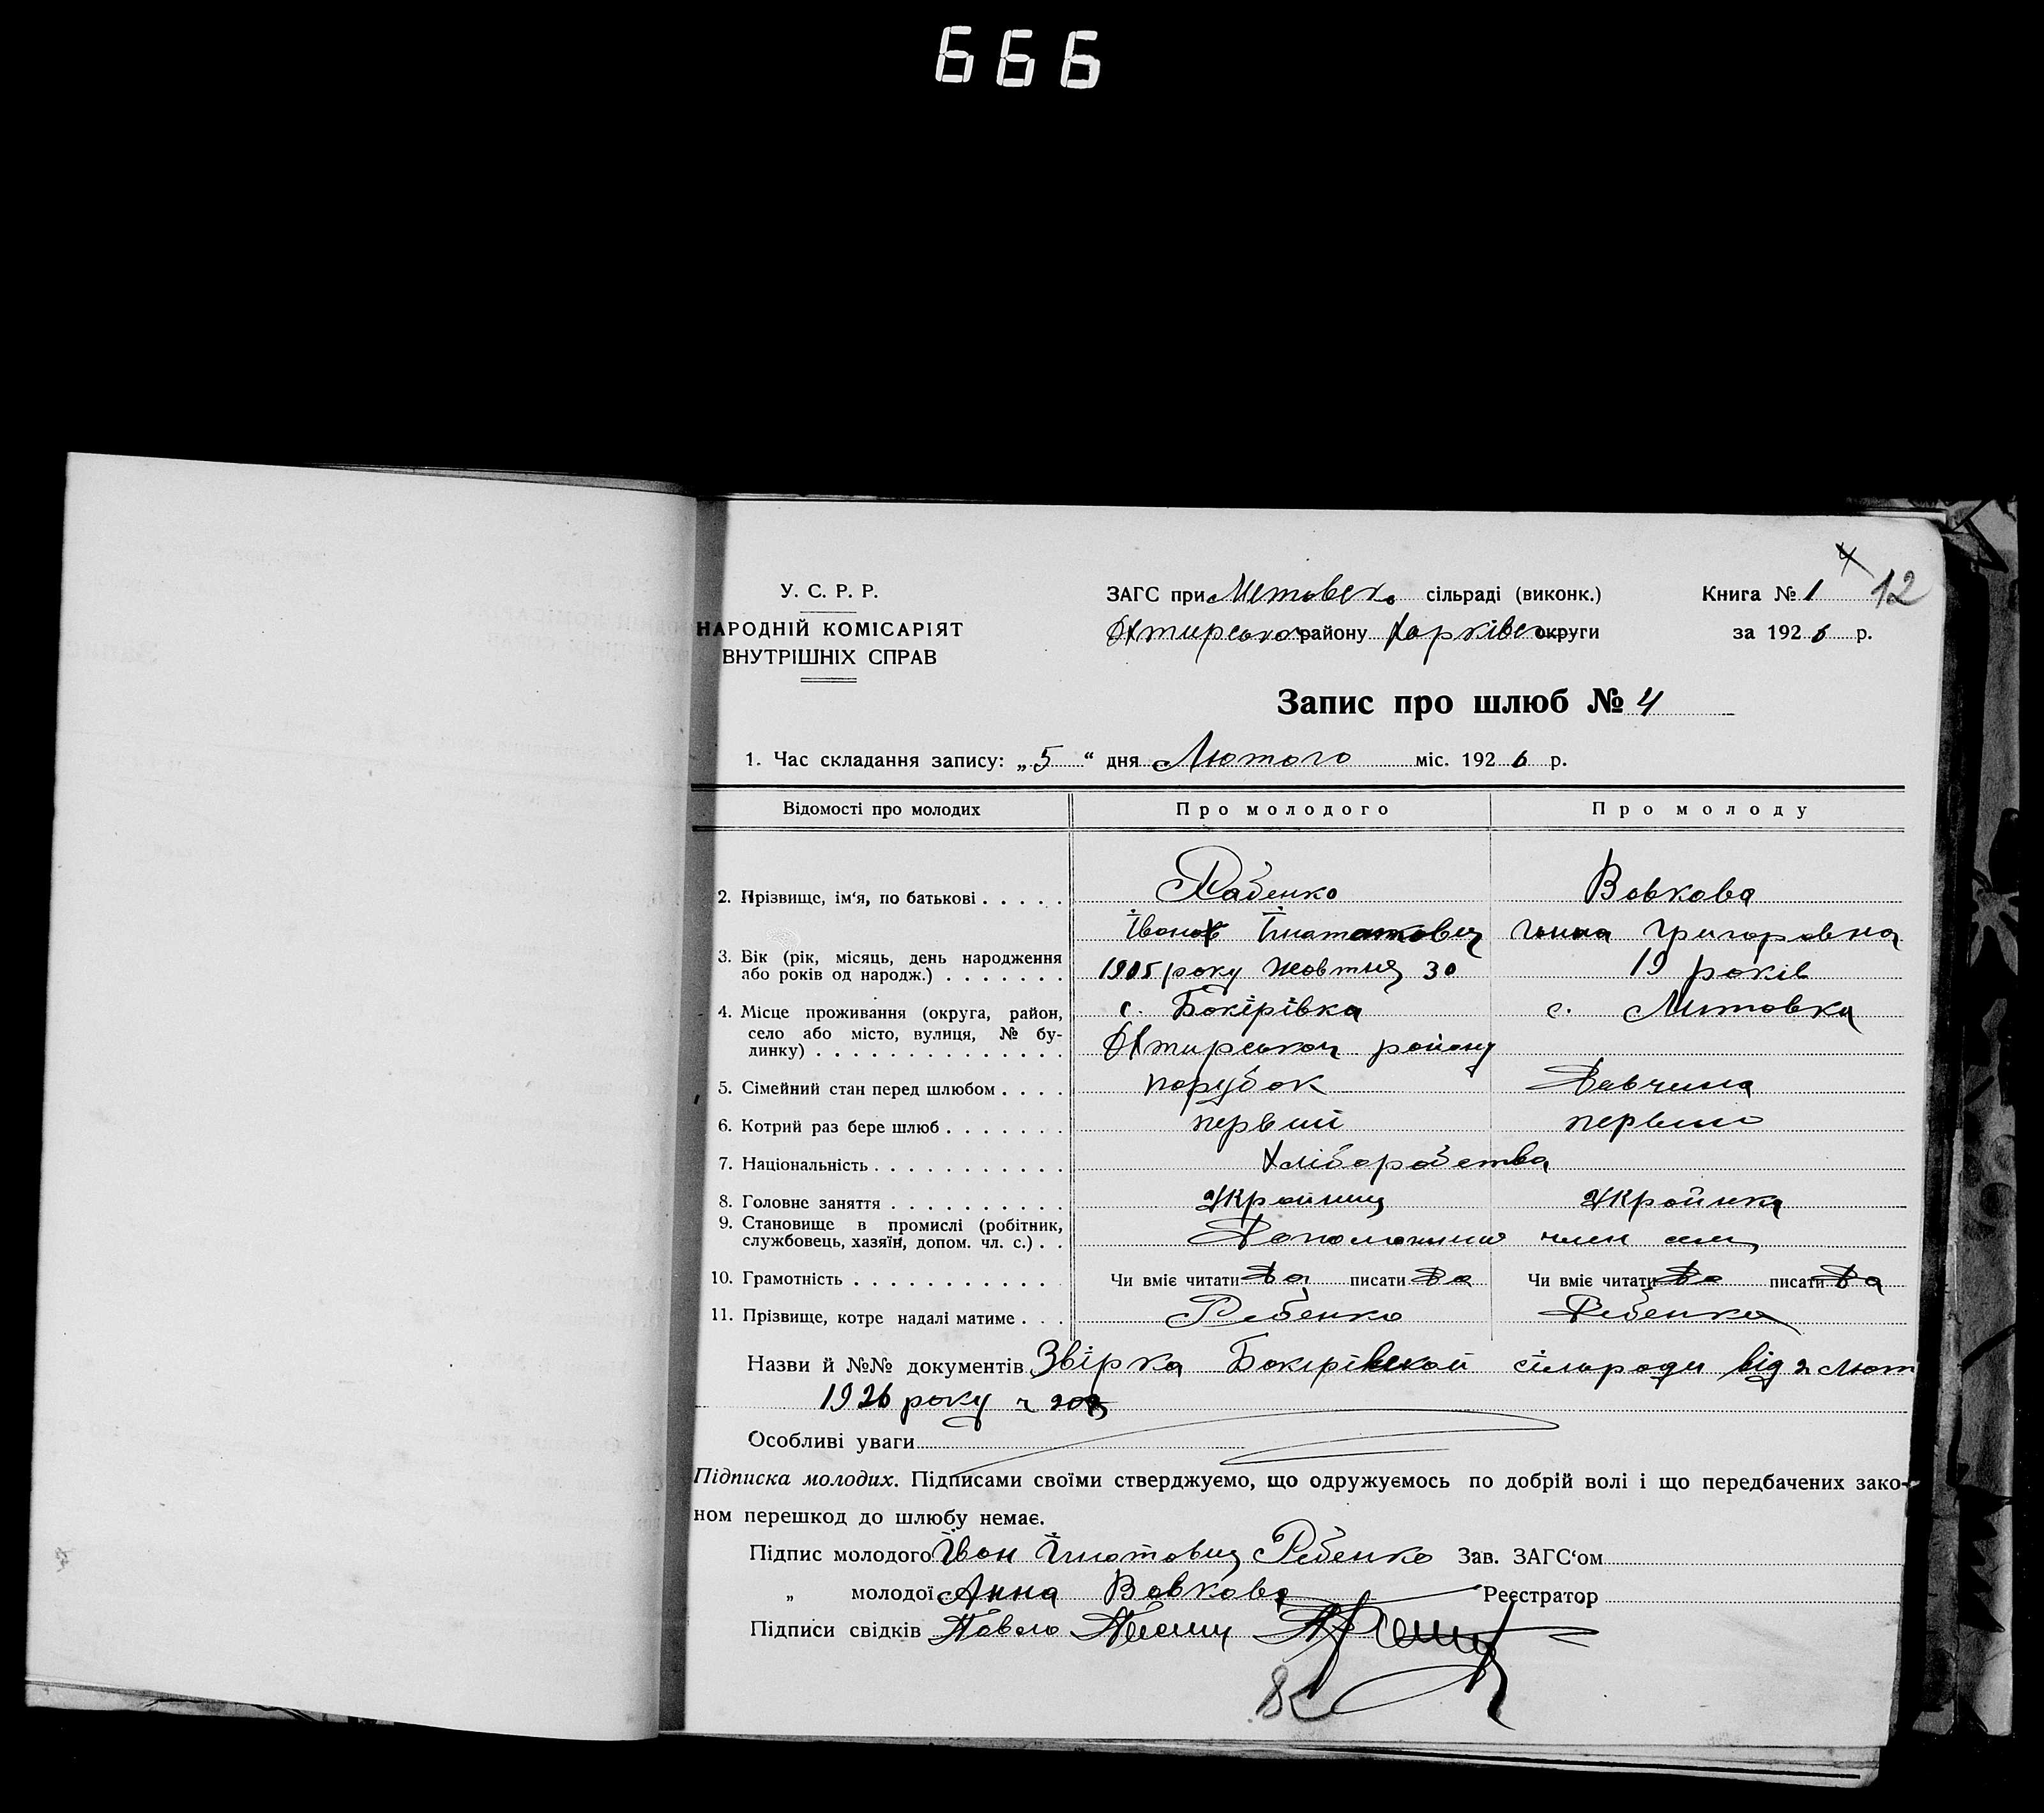 666
У. С. Р. Р.
НАРОДНІЙ КОМІСАРІЯТ
ВНУТРІШНІХ СПРАВ
ЗАГС при сільраді (виконк.)
району Харківс округи
Книга № 1
12
за 1926 р.
Запис про шлюб № 4
1. Час складання запису: „5" дня Лютого міс. 1926 р.
Відомості про молодих Про молодого Про молоду
2. Прізвище, ім'я, по батькові . . . . . Вовкова
Григоровна
3. Вік (рік, місяць, день народження
або років од народж.) . . . . . . . 1905 року Жовтня 30 19 років
4. Місце проживання (округа, район, с. Бокірівка с.
село або місто, вулиця, № бу-
динку) . . . . . . . . . . . . . . району
5. Сімейний стан перед шлюбом . . . . порубок Девчина
6. Котрий раз бере шлюб . . . . . . . первий
7. Національність . . . . . . . . . . . Хліборобства
8. Головне заняття . . . . . . . . . . Украинец Украинка
9. Становище в промислі (робітник,
службовець, хазяїн, допом. чл. с.) . . член
10. Грамотність . . . . . . . . . . . Чи вміє читати Да писати Да Чи вміє читати Да писати Да
11. Прізвище, котре надалі матиме . . . Рябенко
Назви й №№ документів Звірка Бокірівской сільради від 2 Лют
1926 року ч
Особливі уваги
Підписка молодих. Підписами своїми стверджуємо, що одружуємось по добрій волі і що передбачених зако-
ном перешкод до шлюбу немає.
Підпис молодого Іван Ігнатович Рябенко Зав. ЗАГС'ом
„ молодої Анна Вовкова Реєстратор
Підписи свідків Павло